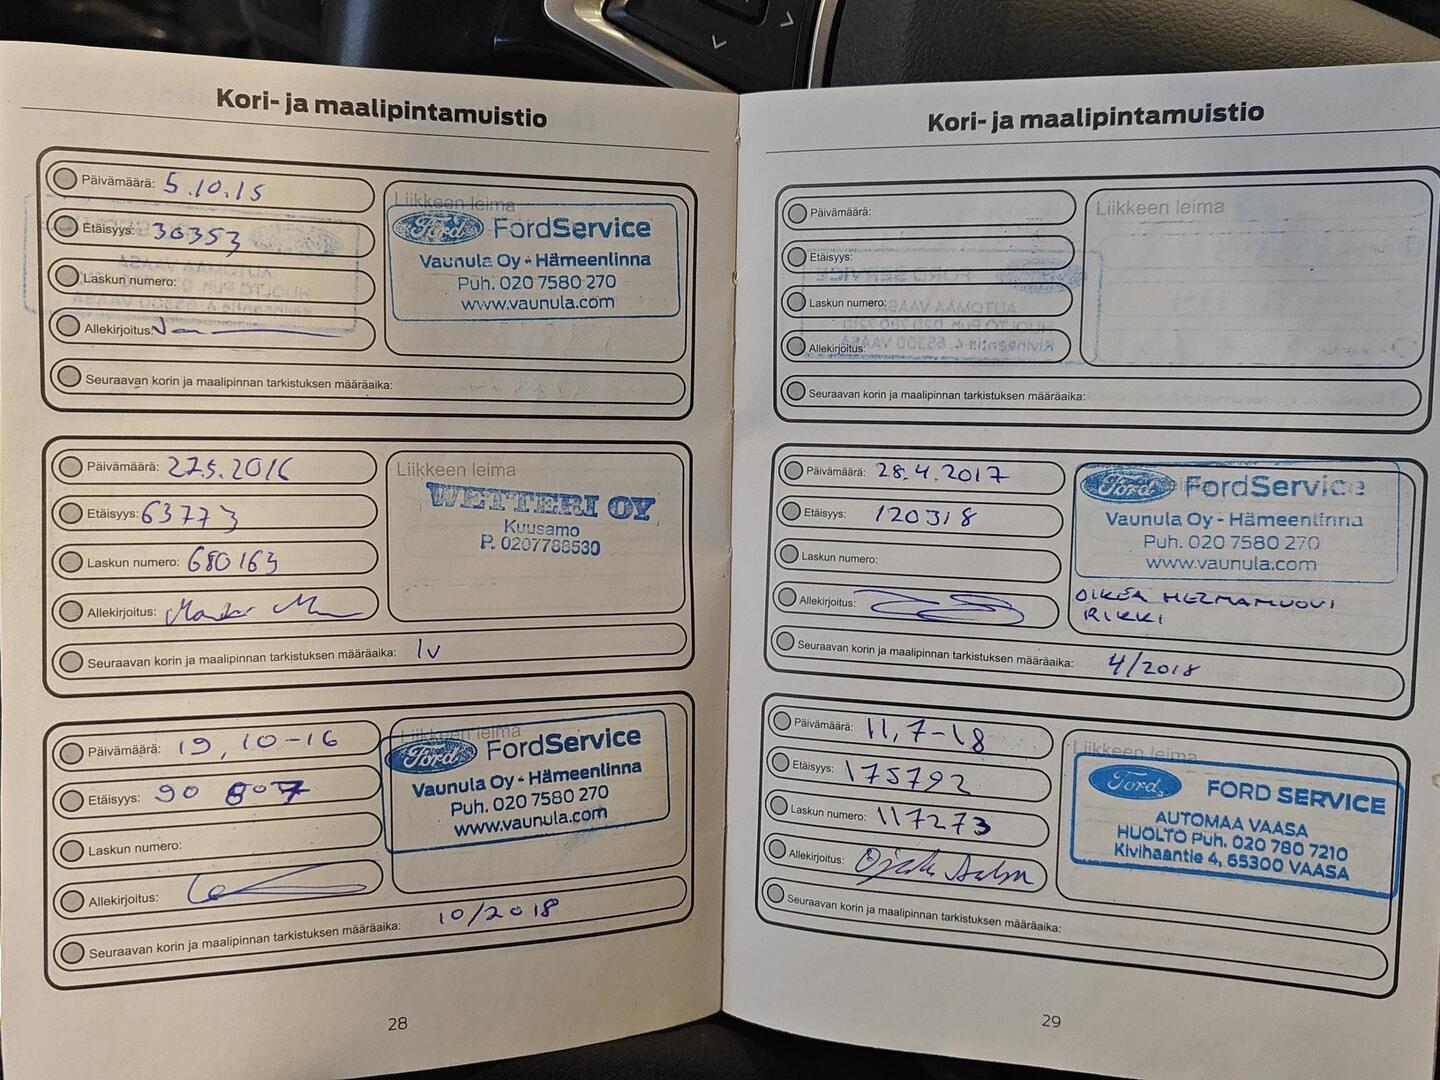 Kori- ja maalipintamuistio
Päivämäärä: 5.10.15
Etäisyys: 30353
Laskun numero:
Allekirjoitus:
Liikkeen leima
Ford FordService
Vaunula Oy - Hämeenlinna
Puh. 020 7580 270
www.vaunula.com
Seuraavan korin ja maalipinnan tarkistuksen määräaika:
Päivämäärä: 27.5.2016
Etäisyys: 63773
Laskun numero: 680163
Allekirjoitus:
Liikkeen leima
WETTERI OY
Kuusamo
P. 0207788530
Seuraavan korin ja maalipinnan tarkistuksen määräaika: 1v
Päivämäärä: 19,10-16
Etäisyys: 90 807
Laskun numero:
Allekirjoitus:
Liikkeen leima
Ford FordService
Vaunula Oy - Hämeenlinna
Puh. 020 7580 270
www.vaunula.com
Seuraavan korin ja maalipinnan tarkistuksen määräaika: 10/2018
28
Kori- ja maalipintamuistio
Päivämäärä:
Etäisyys:
Laskun numero:
Allekirjoitus:
Liikkeen leima
Seuraavan korin ja maalipinnan tarkistuksen määräaika:
Päivämäärä: 28.4.2017
Etäisyys: 120318
Laskun numero:
Allekirjoitus:
Ford FordService
Vaunula Oy - Hämeenlinna
Puh. 020 7580 270
www.vaunula.com
OIKEA HELMAMUOVI
RIKKI
Seuraavan korin ja maalipinnan tarkistuksen määräaika: 4/2018
Päivämäärä: 11,7-18
Etäisyys: 175792
Laskun numero: 117273
Allekirjoitus:
Liikkeen leima
Ford FORD SERVICE
AUTOMAA VAASA
HUOLTO Puh. 020 780 7210
Kivihaantie 4, 65300 VAASA
Seuraavan korin ja maalipinnan tarkistuksen määräaika:
29